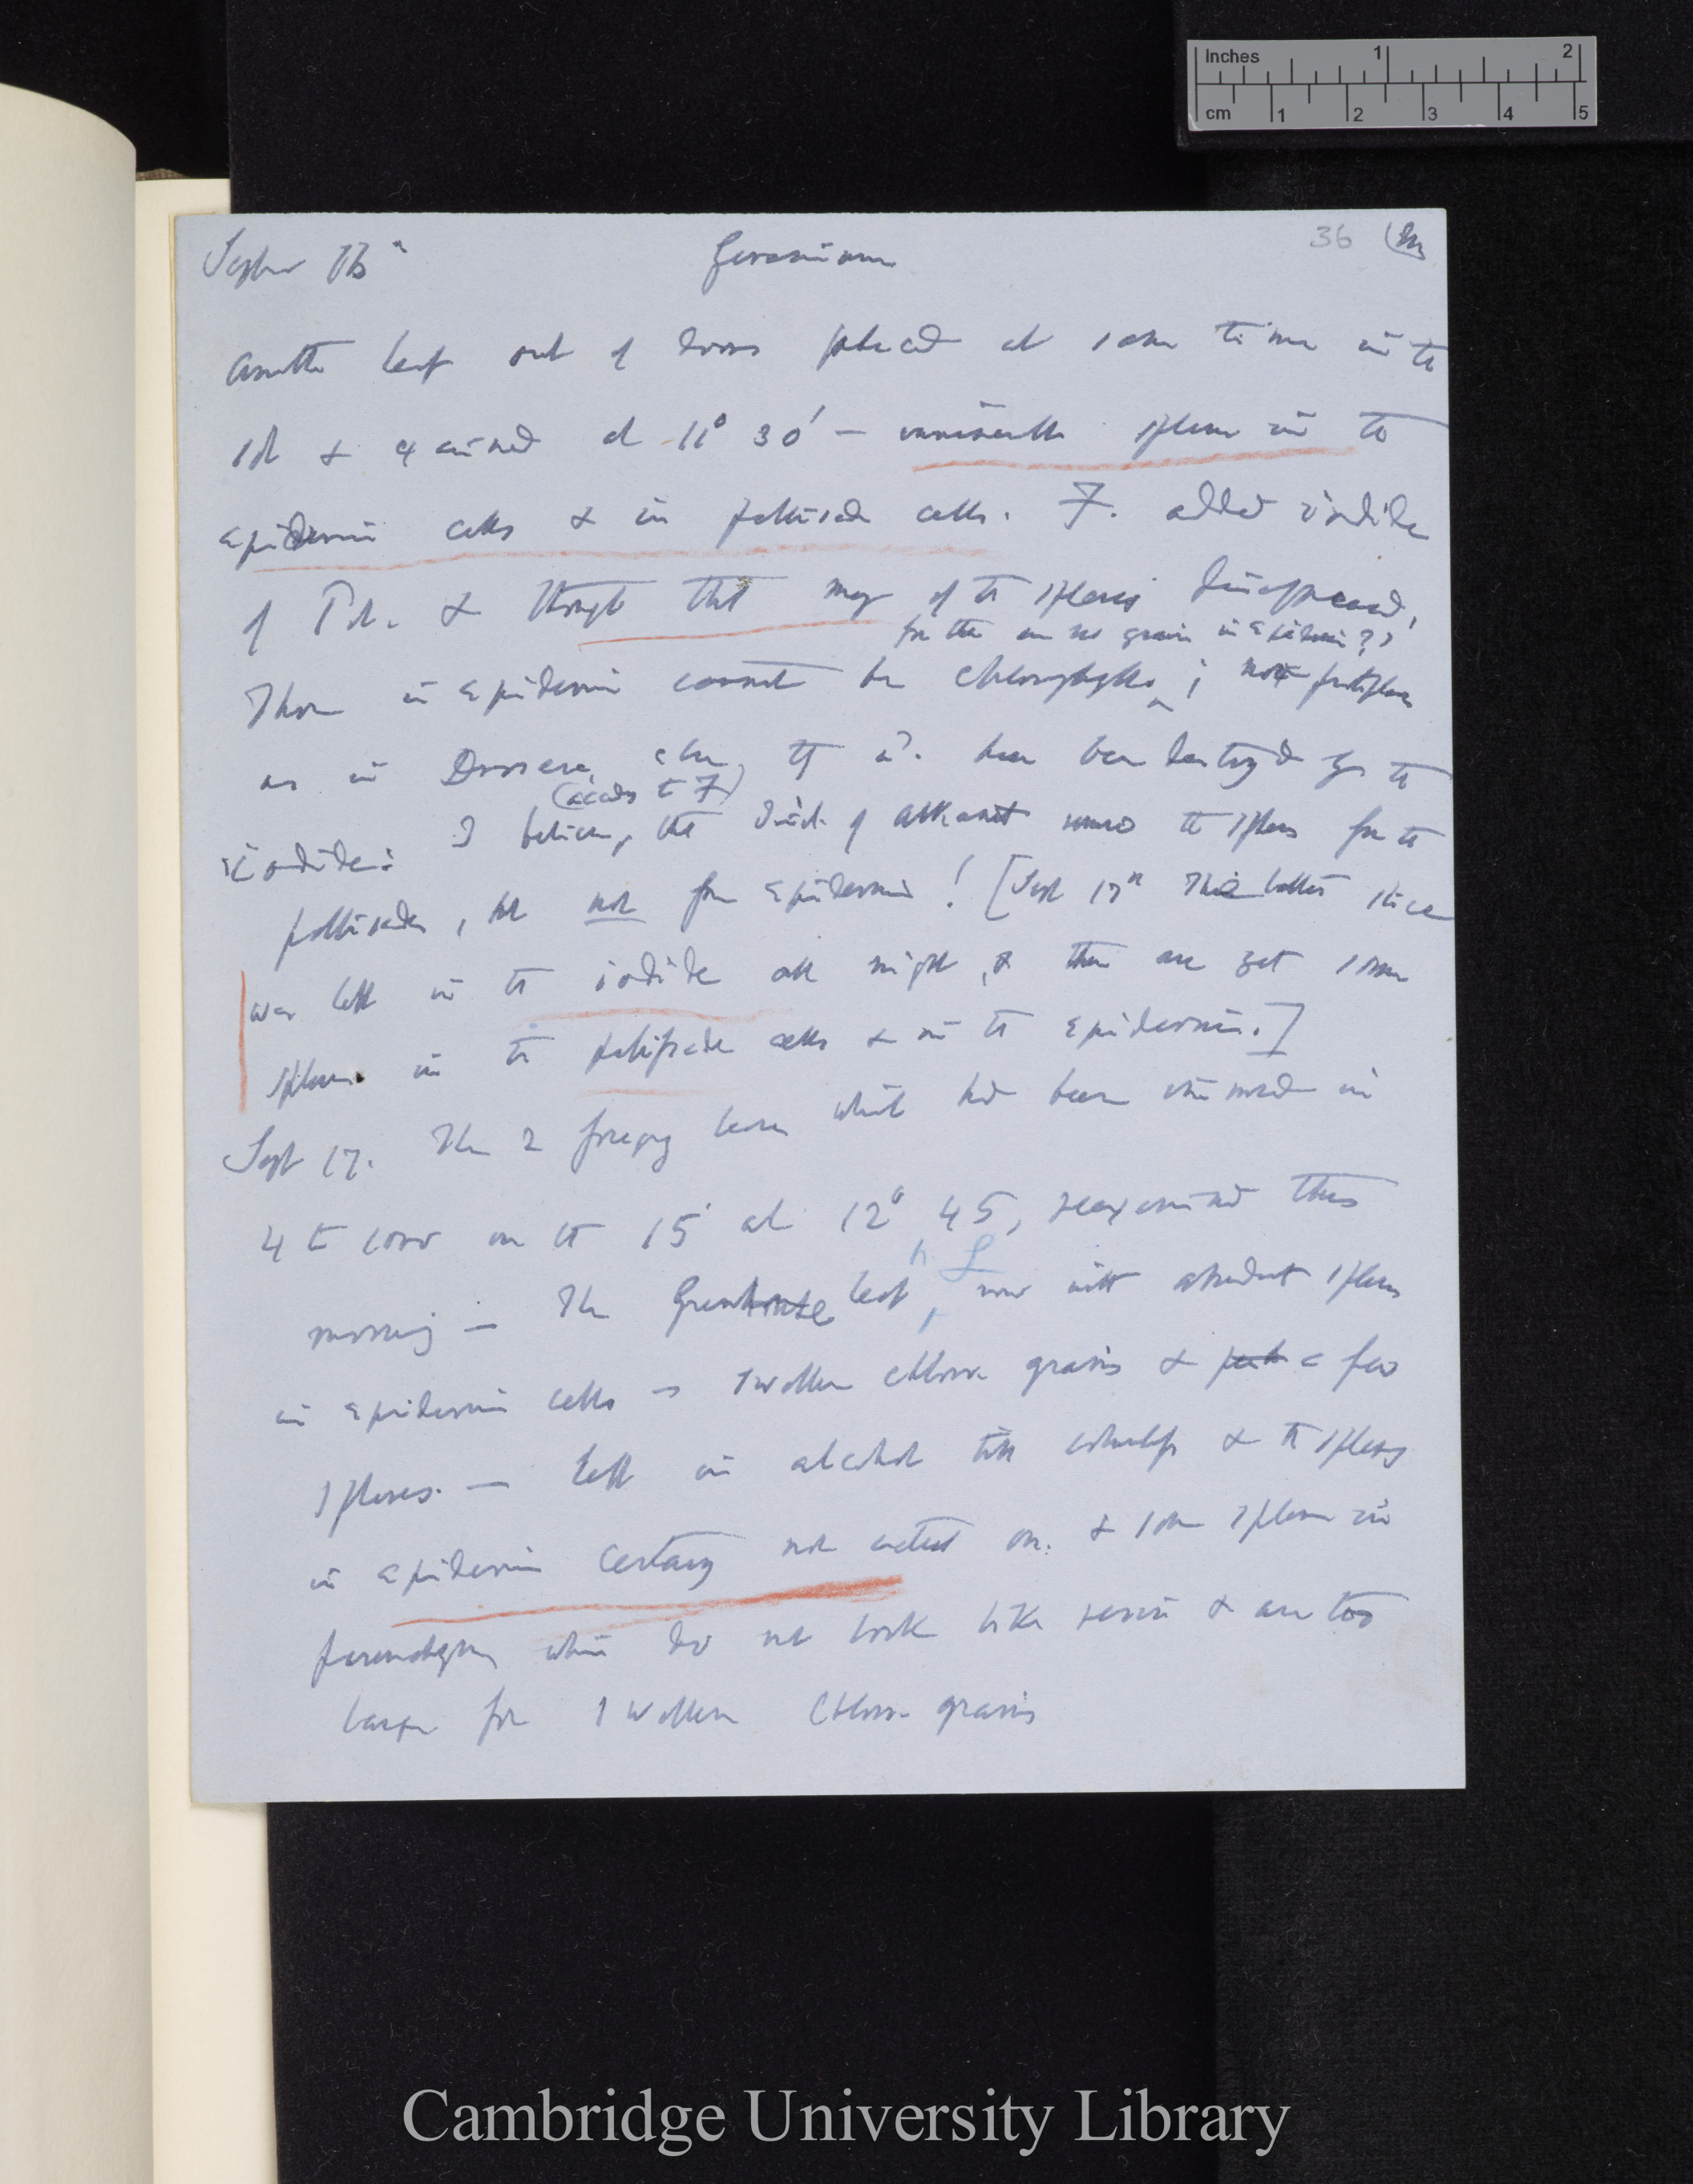 Inches 1 2
cm 1 2 3 4 5
36
Geranium
Another leaf out of doors placed at same time in the
sol & examined at 11° 30' — innumerable spheres in the
epidermic cells & in pallisade cells. F. added iodide
of Pot. & thought that many of the spheres disappeared,
for there are no grains in epidermis?)
Those in epidermis cannot be chlorophyll ; not
as in Drosera, else they wd. have been destroyed by the
(accord to F)
iodide: I believe, that Tinct. of alkanet the spheres for the
pallisade, but not for epidermis! [Sept 17th This latter slice
was left in the iodide all night, & there are yet some
spheres in the pallisade cells & in the epidermis.]
Sept 17. The 2 foregoing leaves which had been immersed in
4 to 1000 on the 15' at 12° 45, reexamined this
morning — The Greenhouse leaf, now with abundant spheres
in epidermic cells — swollen chloro. grains & a few
spheres. — Left in alcohol till & the spheres
in epidermis certainly not acted on. & some spheres in
parenchyma which do not look like resin & are too
large for swollen Chloro. grains
Cambridge University Library